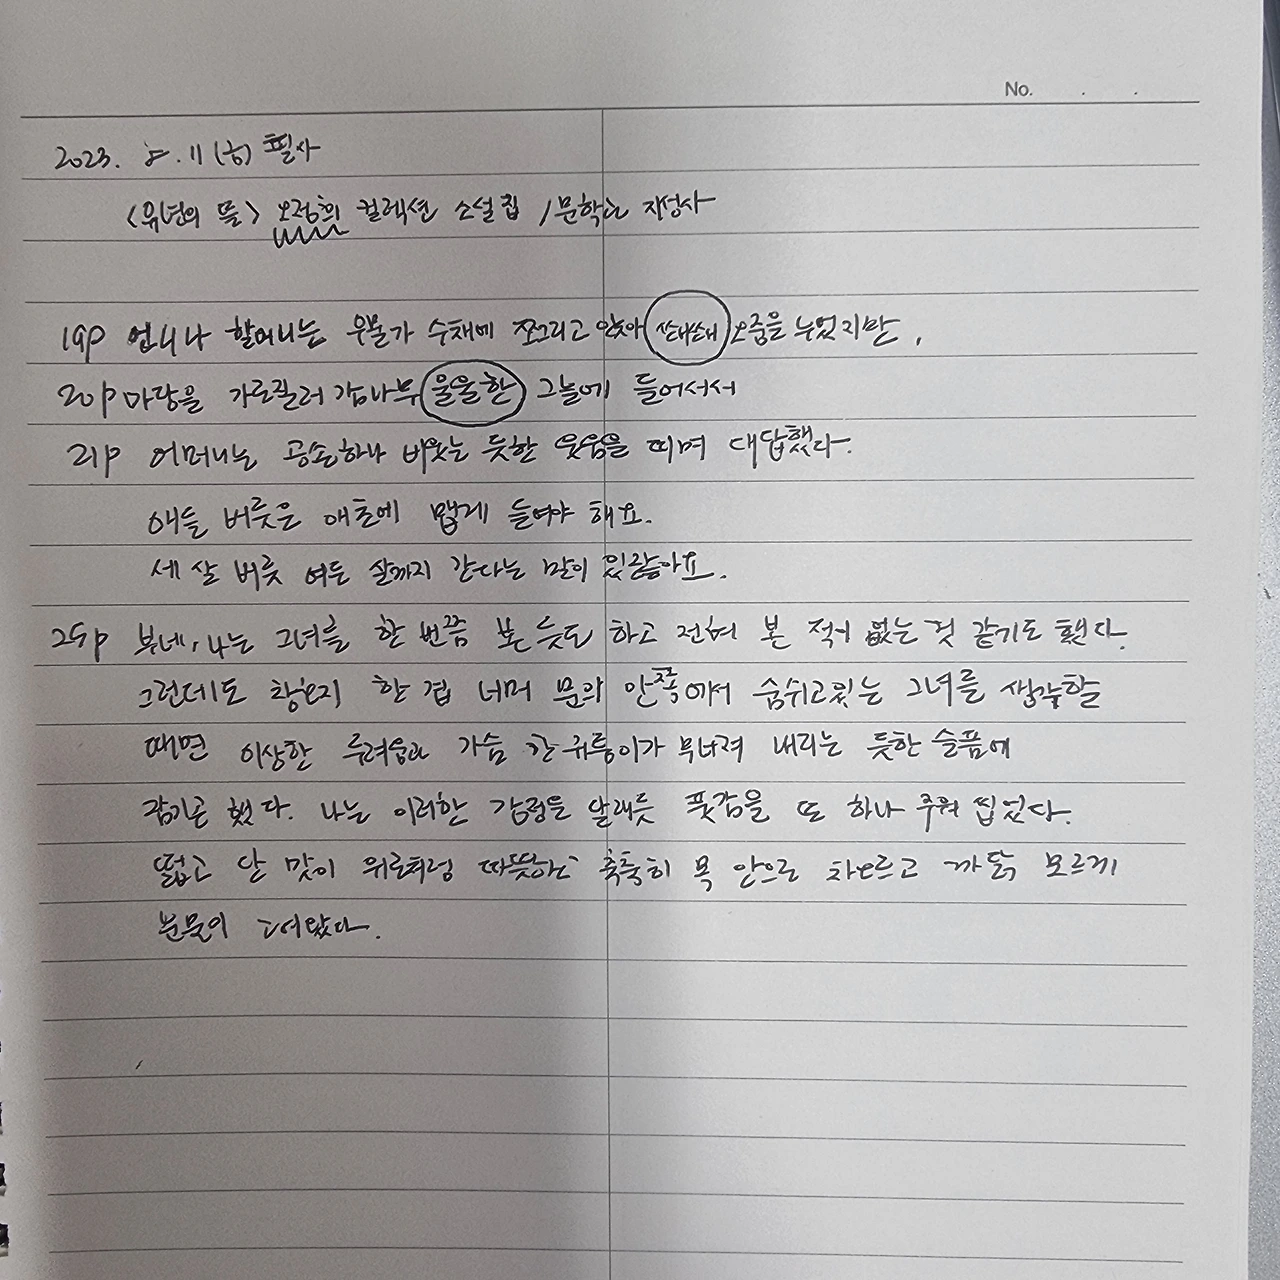 No. . .
2023. 8. 11 (金) 필사
<유년의 뜰> 오정희 컬렉션 소설집 / 문학과 지성사
19p 언니나 할머니는 우물가 수채에 쪼그리고 앉아 쏴쏴 오줌을 누었지만,
20p 마당을 가로질러 감나무 울울한 그늘에 들어서서
21p 어머니는 공손하나 비웃는 듯한 웃음을 띠며 대답했다.
애들 버릇은 애초에 맵게 들여야 해요.
세 살 버릇 여든 살까지 간다는 말이 있잖아요.
25p 부네, 나는 그녀를 한 번쯤 본 듯도 하고 전혀 본 적이 없는 것 같기도 했다.
그런데도 창호지 한 겹 너머 문과 안쪽에서 숨쉬고있는 그녀를 생각할
때면 이상한 두려움과 가슴 한 귀퉁이가 무너져 내리는 듯한 슬픔에
잠기곤 했다. 나는 이러한 감정을 달래듯 풋감을 또 하나 주워 씹었다.
떫고 단 맛이 위로처럼 따뜻하고 축축히 목 안으로 차오르고 까닭 모르게
눈물이 괴어왔다.